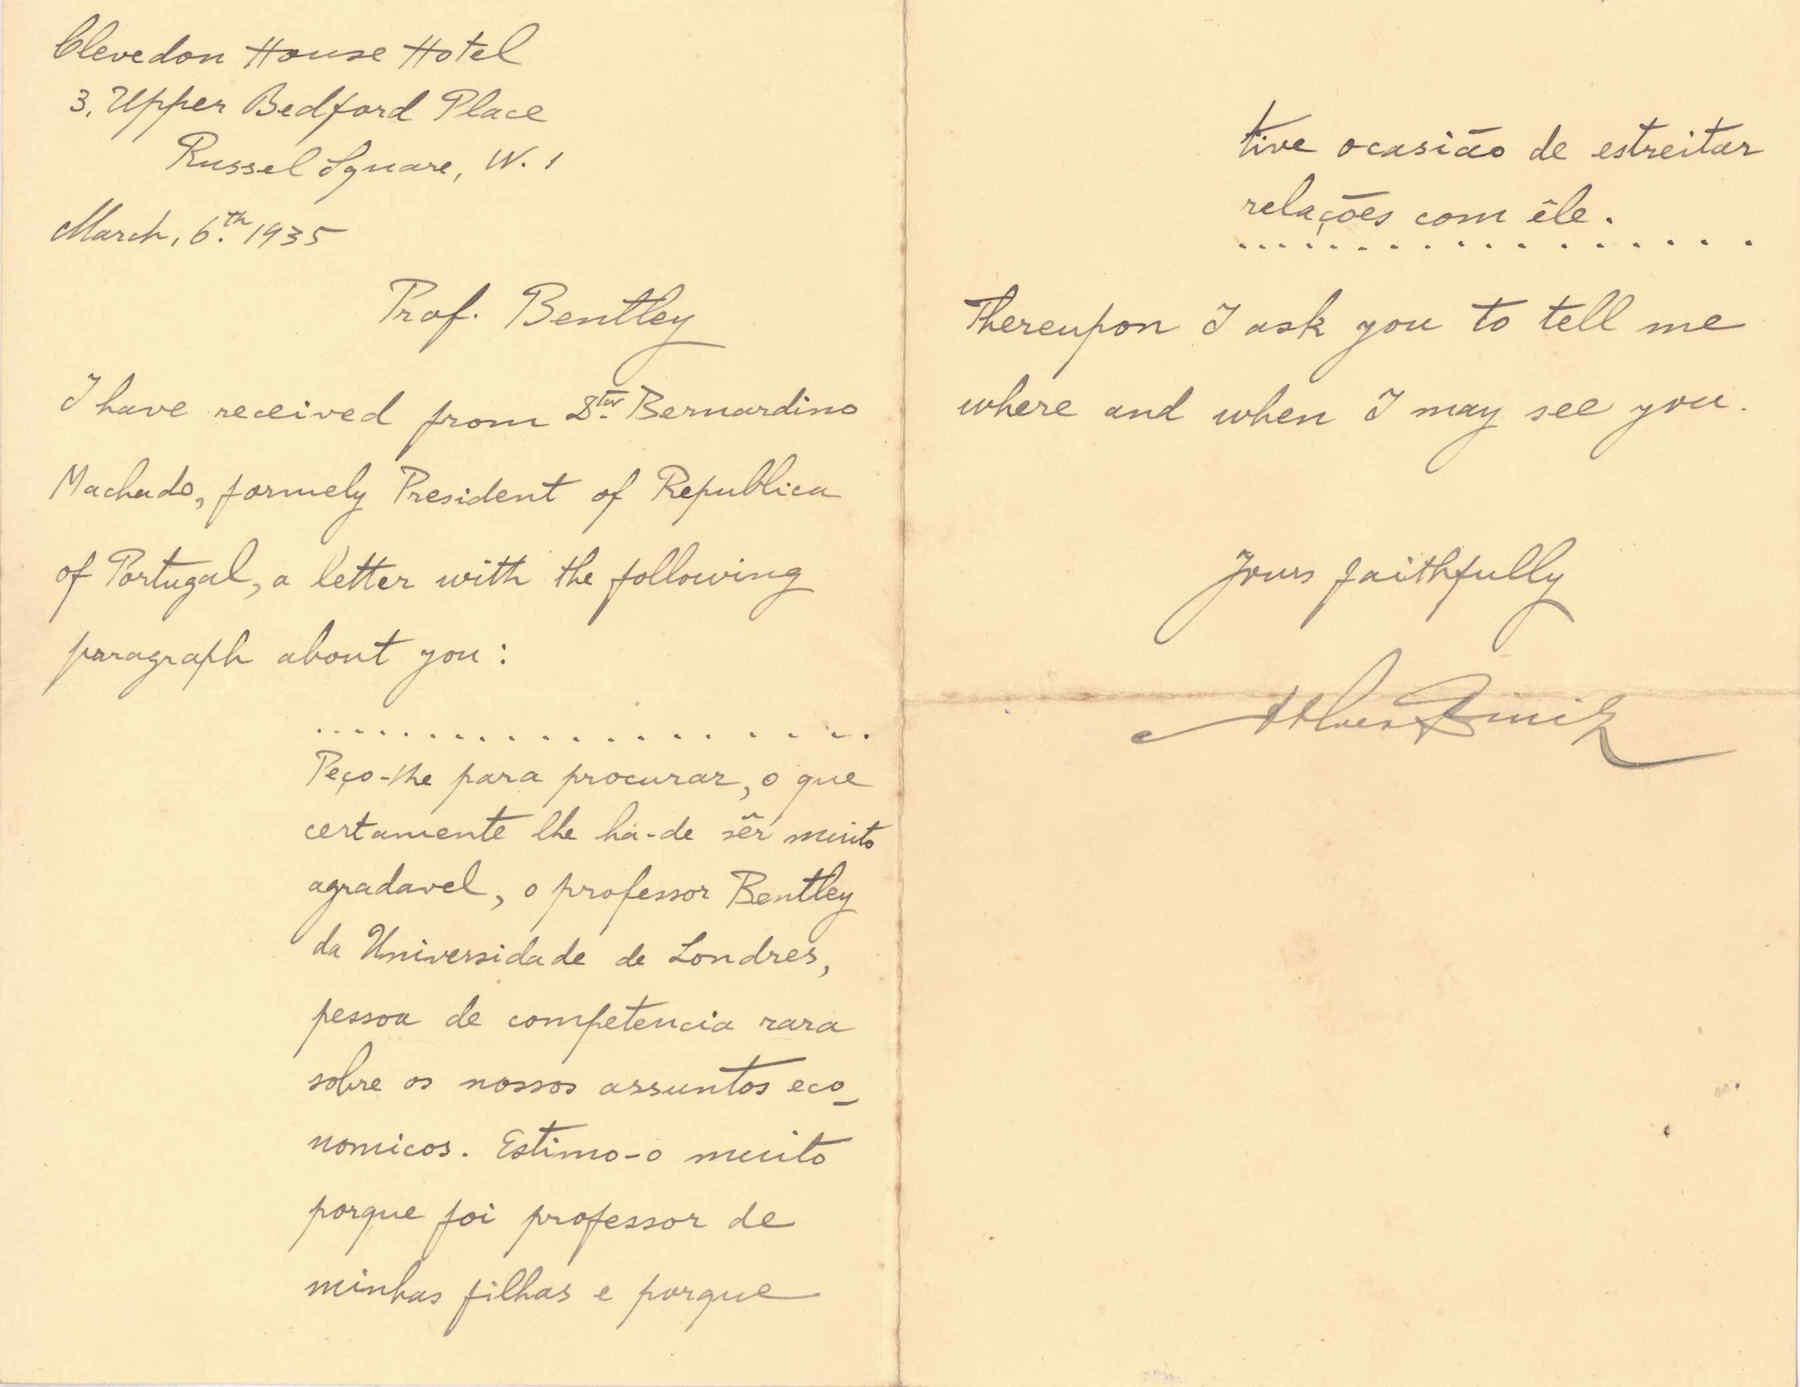 Clevedon House Hotel
3, Upper Bedford Place
Russel Square, W. 1
March, 6.th 1935
Prof. Bentley
I have received from Dtor. Bernardino
Machado, formely President of Republica
of Portugal, a letter with the following
paragraph about you:
....................
Peço-lhe para procurar, o que
certamente lhe há-de sêr muito
agradavel, o professor Bentley
da Universidade de Londres,
pessoa de competencia rara
sobre os nossos assuntos eco-
nomicos. Estimo-o muito
porque foi professor de
minhas filhas e porque
tive ocasião de estreitar
relações com êle.
....................
Thereupon I ask you to tell me
where and when I may see you.
Yours faithfully